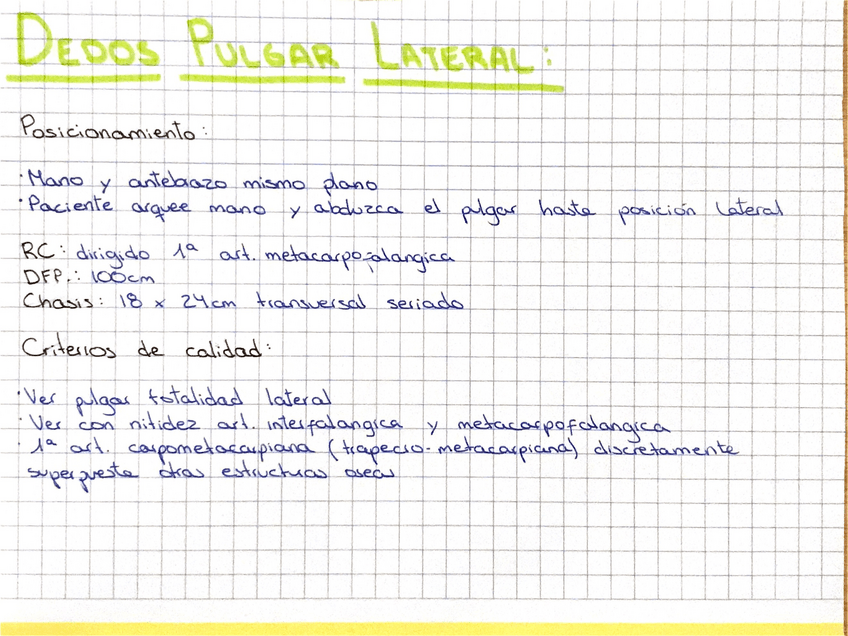 DEDOS PULGAR LATERAL:
Posicionamiento:
· Mano y antebrazo mismo plano
· Paciente arquee mano y abduzca el pulgar hasta posición lateral
RC: dirigido 1ª art. metacarpofalangica
DFP.: 100cm
Chasis: 18 x 24cm transversal seriado
Criterios de calidad:
· Ver pulgar totalidad lateral
· Ver con nitidez art. interfalangica y metacarpofalangica
· 1ª art. carpometacarpiana (trapecio-metacarpiana) discretamente
superpuesta otras estructuras oseas